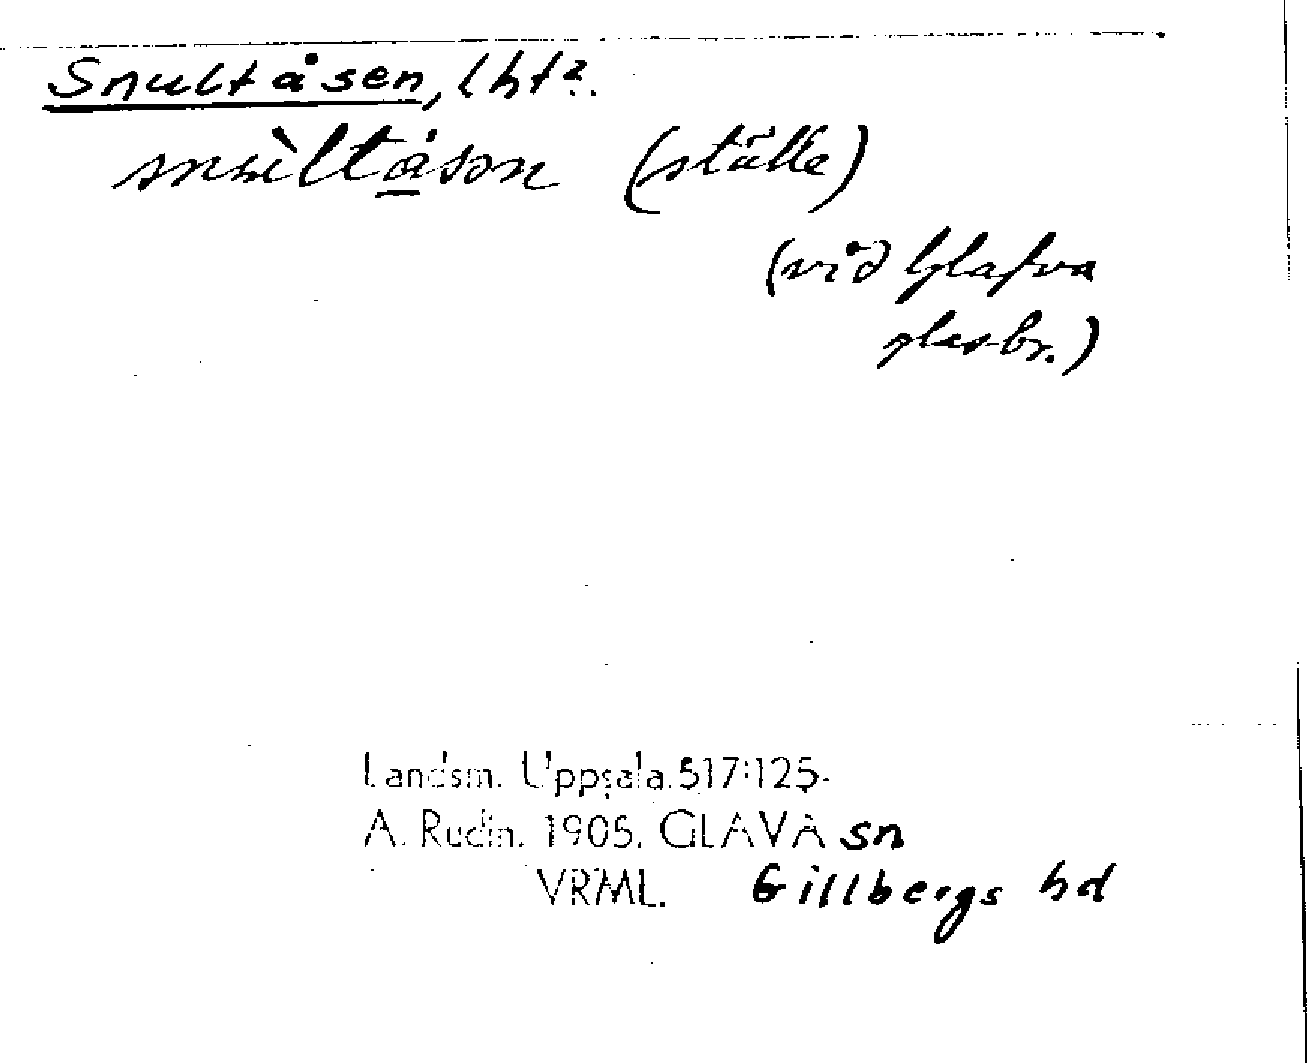 Snultåsen, lht?.
snùltåsǝn (ställe)
(vid Glafva
glasbr.)
Landsm. Uppsala.517:125.
A. Rudin. 1905. GLAVA sn
VRML. Gillbergs hd